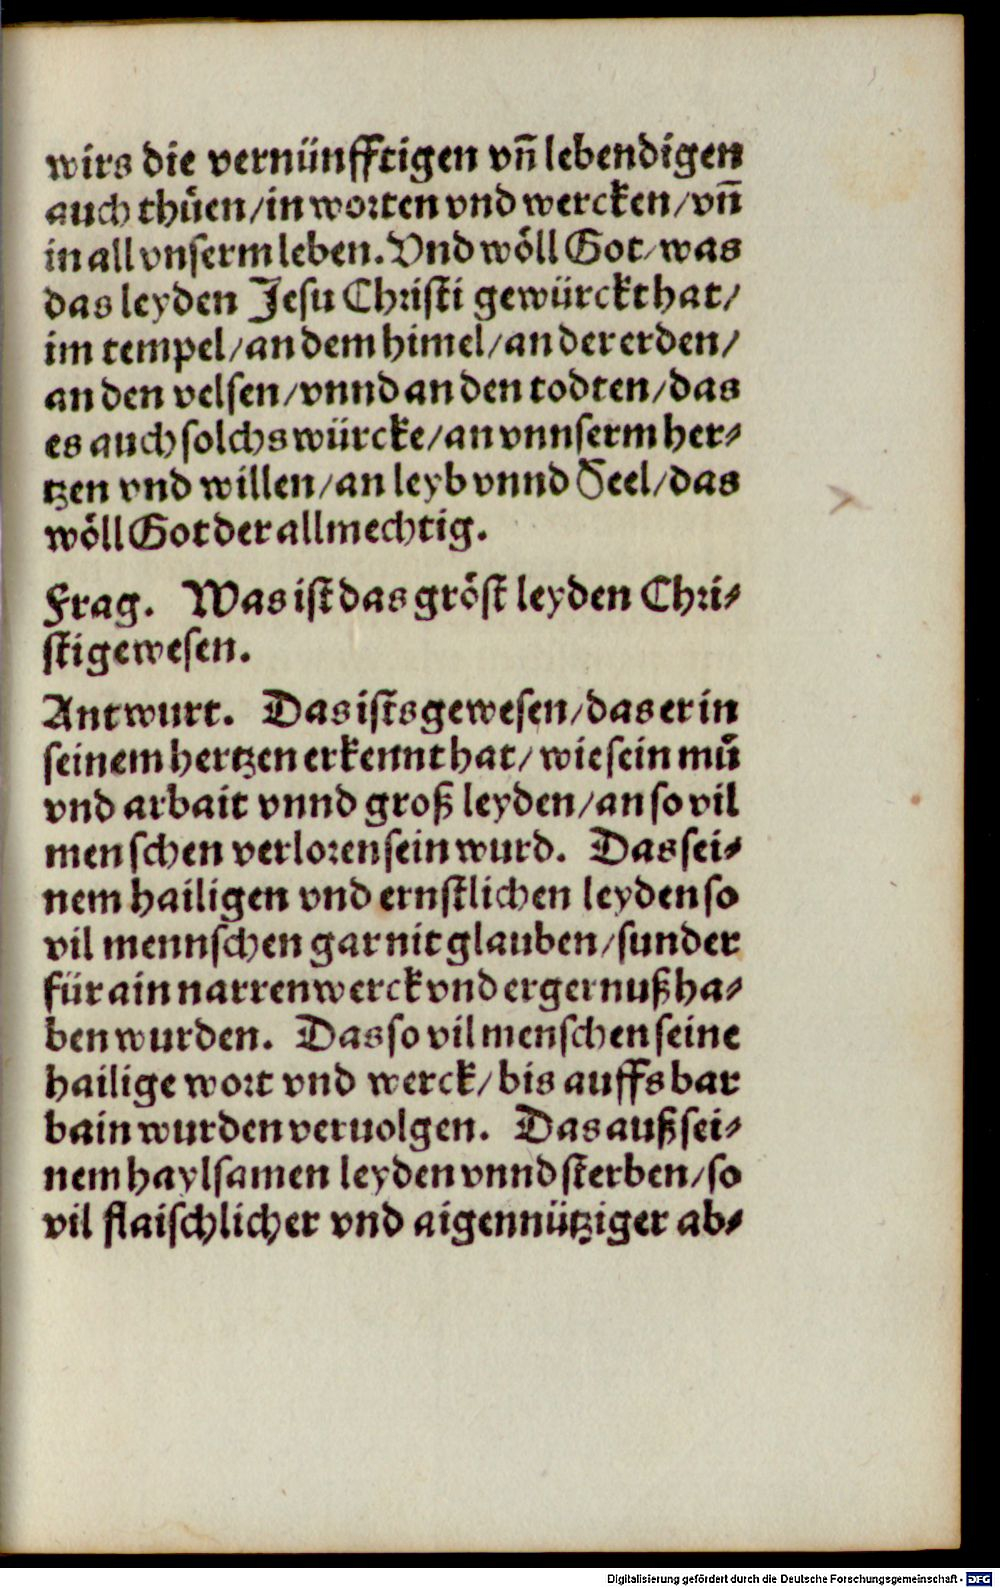 wirs die vernünfftigen vñ lebendigen
auch thůen/in worten vnd wercken/vñ
in all vnserm leben. Vnd wöll Got/was
das leyden Jesu Christi gewürckt hat/
im tempel/an dem himel/an der erden/
an den velsen/vnnd an den todten/das
es auch solchs würcke/an vnnserm her⸗
tzen vnd willen/an leyb vnnd Seel/das
wöll Got der allmechtig.
Frag. Was ist das gröst leyden Chri⸗
sti gewesen.
Antwurt. Das ists gewesen/das er in
seinem hertzen erkennt hat/wie sein mů
vnd arbait vnnd groß leyden/an so vil
menschen verloren sein wurd. Das sei⸗
nem hailigen vnd ernstlichen leyden so
vil mennschen gar nit glauben/sunder
für ain narrenwerck vnd ergernuß ha⸗
ben wurden. Das so vil menschen seine
hailige wort vnd werck/bis auffs bar
bain wurden veruolgen. Das auß sei⸗
nem haylsamen leyden vnnd sterben/so
vil flaischlicher vnd aigennütziger ab⸗
Digitalisierung gefördert durch die Deutsche Forschungsgemeinschaft - DFG